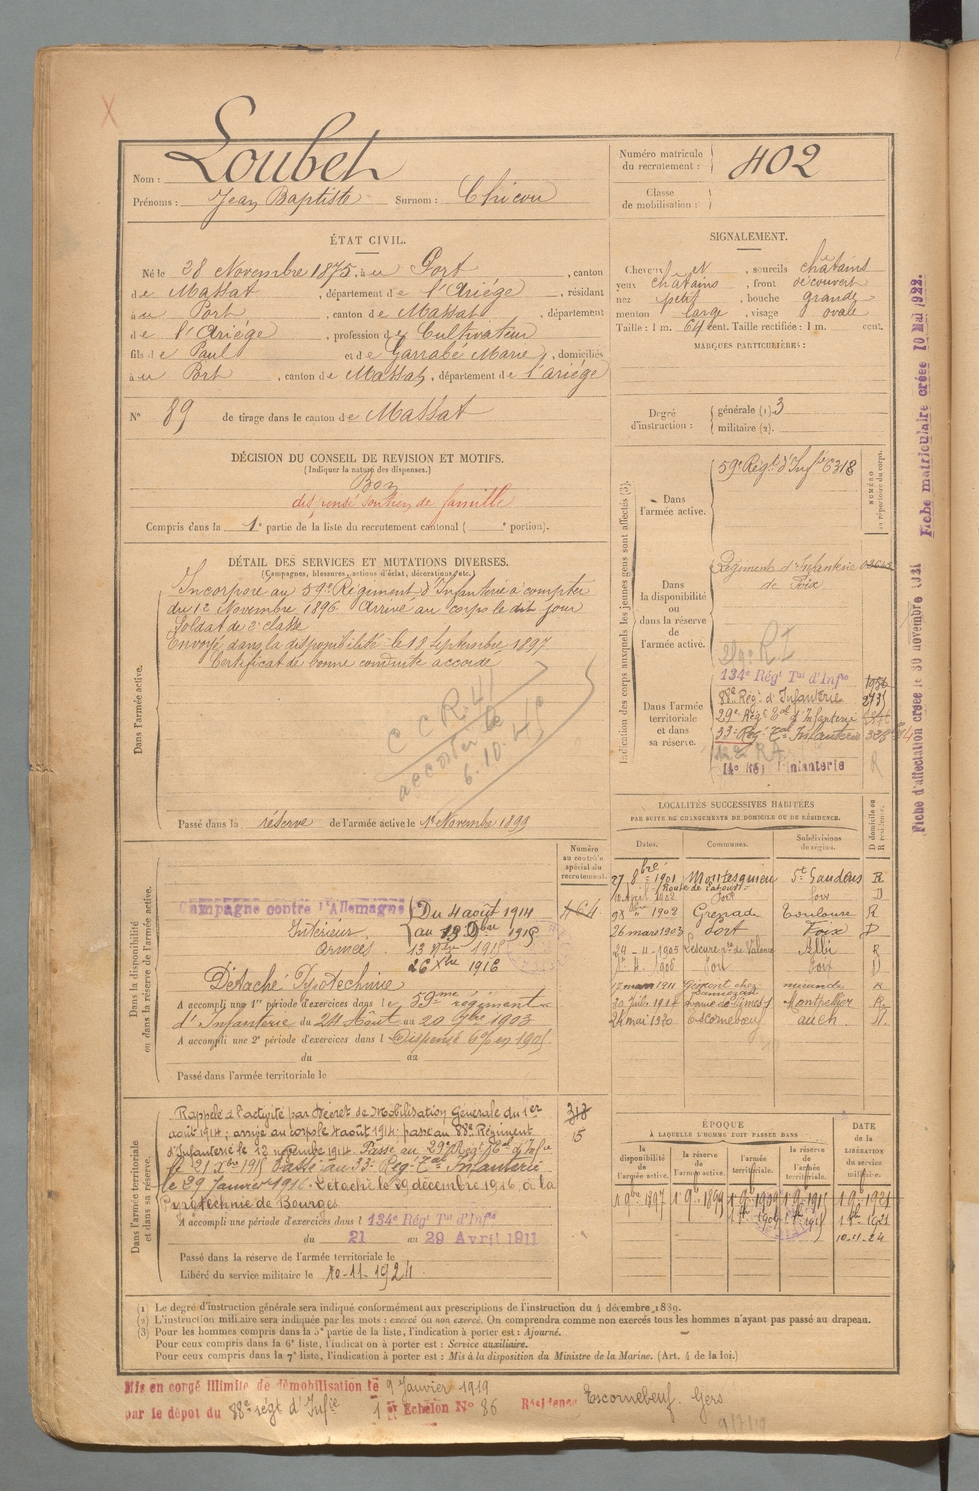 Loubet
Nom :
Prénoms : Jean Baptiste Surnom : Chicou
Numéro matricule du recrutement : 402
Classe de mobilisation :
ÉTAT CIVIL.
Né le 28 Novembre 1875, à au Port, canton
de Massat, département de l'Ariége, résidant
à au Port, canton de Massat, département
de l'Ariége, profession de Cultivateur
fils de Paul et de Garrabé Marie, domiciliés
à au Port, canton de Massat, département de l'ariége
N° 89 de tirage dans le canton de Massat
SIGNALEMENT.
Cheveux et, sourcils châtains
yeux châtains, front découvert
nez petit, bouche grande
menton large, visage ovale
Taille : 1 m. 64 cent. Taille rectifiée : 1 m. cent.
MARQUES PARTICULIÈRES :
Degré d'instruction : générale (1). 3
militaire (2).
DÉCISION DU CONSEIL DE REVISION ET MOTIFS.
(Indiquer la nature des dispenses.)
Bon
dispensé soutien de famille
Compris dans la 1e partie de la liste du recrutement cantonal ( e portion).
DÉTAIL DES SERVICES ET MUTATIONS DIVERSES.
(Campagnes, blessures, actions d'éclat, décorations, etc.)
Dans l'armée active.
Incorporé au 59e Régiment d'Infanterie à compter
du 12 Novembre 1896 Arrivé au corps le dit jour
Soldat de 2e classe
Envoyé dans la disponibilité le 18 Septembre 1897
Certificat de bonne conduite accordé
C C R. 41
6.10.45
Passé dans la réserve de l'armée active le 1er Novembre 1899
Indication des corps auxquels les jeunes gens sont affectés (3).
Dans l'armée active.
59e Régt d'Infie 6318
NUMÉRO au répertoire du corps.
Dans la disponibilité ou dans la réserve de l'armée active.
Régiment d'Infanterie
de Foix
Dans l'armée territoriale et dans sa réserve.
134e Régt Tal d'Infie
88e Rég. d'Infanterie
29e Régt Tal d'Infanterie
33e Rég. Tal Infanterie
Fiche d'affectation créée le 30 novembre 1921 Fiche matriculaire créée 10 Mai 1922.
LOCALITÉS SUCCESSIVES HABITÉES
PAR SUITE DE CHANGEMENTS DE DOMICILE OU DE RÉSIDENCE.
Dates. Communes. Subdivisions de région. D domicile ou R résidence.
27 8bre 1901 Montesquieu St Gaudens R
Port Foix D
1902 Grenade Toulouse R
26 mars 1903 Port Foix D
24 - 11 - 1905 Lescure Albi R
4. 1906 Port Foix D
mars 1911 mirande R
Montpellier R
24 mai 1920 Escornebœuf auch D.
Dans la disponibilité ou dans la réserve de l'armée active.
Numéro au contrôle spécial du recrutement.
464
Campagne contre l'Allemagne Du 4 août 1914
Intérieur au 1915
armées
Détaché Pyrotechnie
A accompli une 1re période d'exercices dans le 59me régiment
d'Infanterie du 24 Août au 20 9bre 1903
A accompli une 2e période d'exercices dans l Dispensé
du au
Passé dans l'armée territoriale le
Dans l'armée territoriale et dans sa réserve.
Rappelé à l'activité par Décret de Mobilisation Générale du 1er
août 1914 ; arrivé au corps le 4 août 1914. passé au 88e Régiment
d'Infanterie le 12 novembre 1914. Passé au 29e Régt Tal d'Infie
le 21 Xbre 1915 Passé au 33e Rég. Tal Infanterie
le 29 Janvier 1916. Détaché le 29 décembre 1916, à la
Pyrotechnie de Bourges
A accompli une période d'exercices dans l 134e Régt Tal d'Infie
du 21 au 29 Avril 1911
Passé dans la réserve de l'armée territoriale le
Libéré du service militaire le 10-11-1924
318
15
ÉPOQUE
À LAQUELLE L'HOMME DOIT PASSER DANS
DATE de la LIBÉRATION du service militaire.
la disponibilité de l'armée active. la réserve de l'armée active. l'armée territoriale. la réserve de l'armée territoriale.
1 9bre 1897 1 9bre 1899 1 9bre 1909 1 9bre 1915 1 9bre 1921
10-11-24
(1) Le degré d'instruction générale sera indiqué conformément aux prescriptions de l'instruction du 4 décembre 1889.
(2) L'instruction militaire sera indiquée par les mots : exercé ou non exercé. On comprendra comme non exercés tous les hommes n'ayant pas passé au drapeau.
(3) Pour les hommes compris dans la 5e partie de la liste, l'indication à porter est : Ajourné.
Pour ceux compris dans la 6e liste, l'indication à porter est : Service auxiliaire.
Pour ceux compris dans la 7e liste, l'indication à porter est : Mis à la disposition du Ministre de la Marine. (Art. 4 de la loi.)
Mis en congé illimité de démobilisation le 9 Janvier 1919
par le dépôt du 88e régt d'Infie 1er Echelon N° 86 Résidence Escornebeuf. Gers